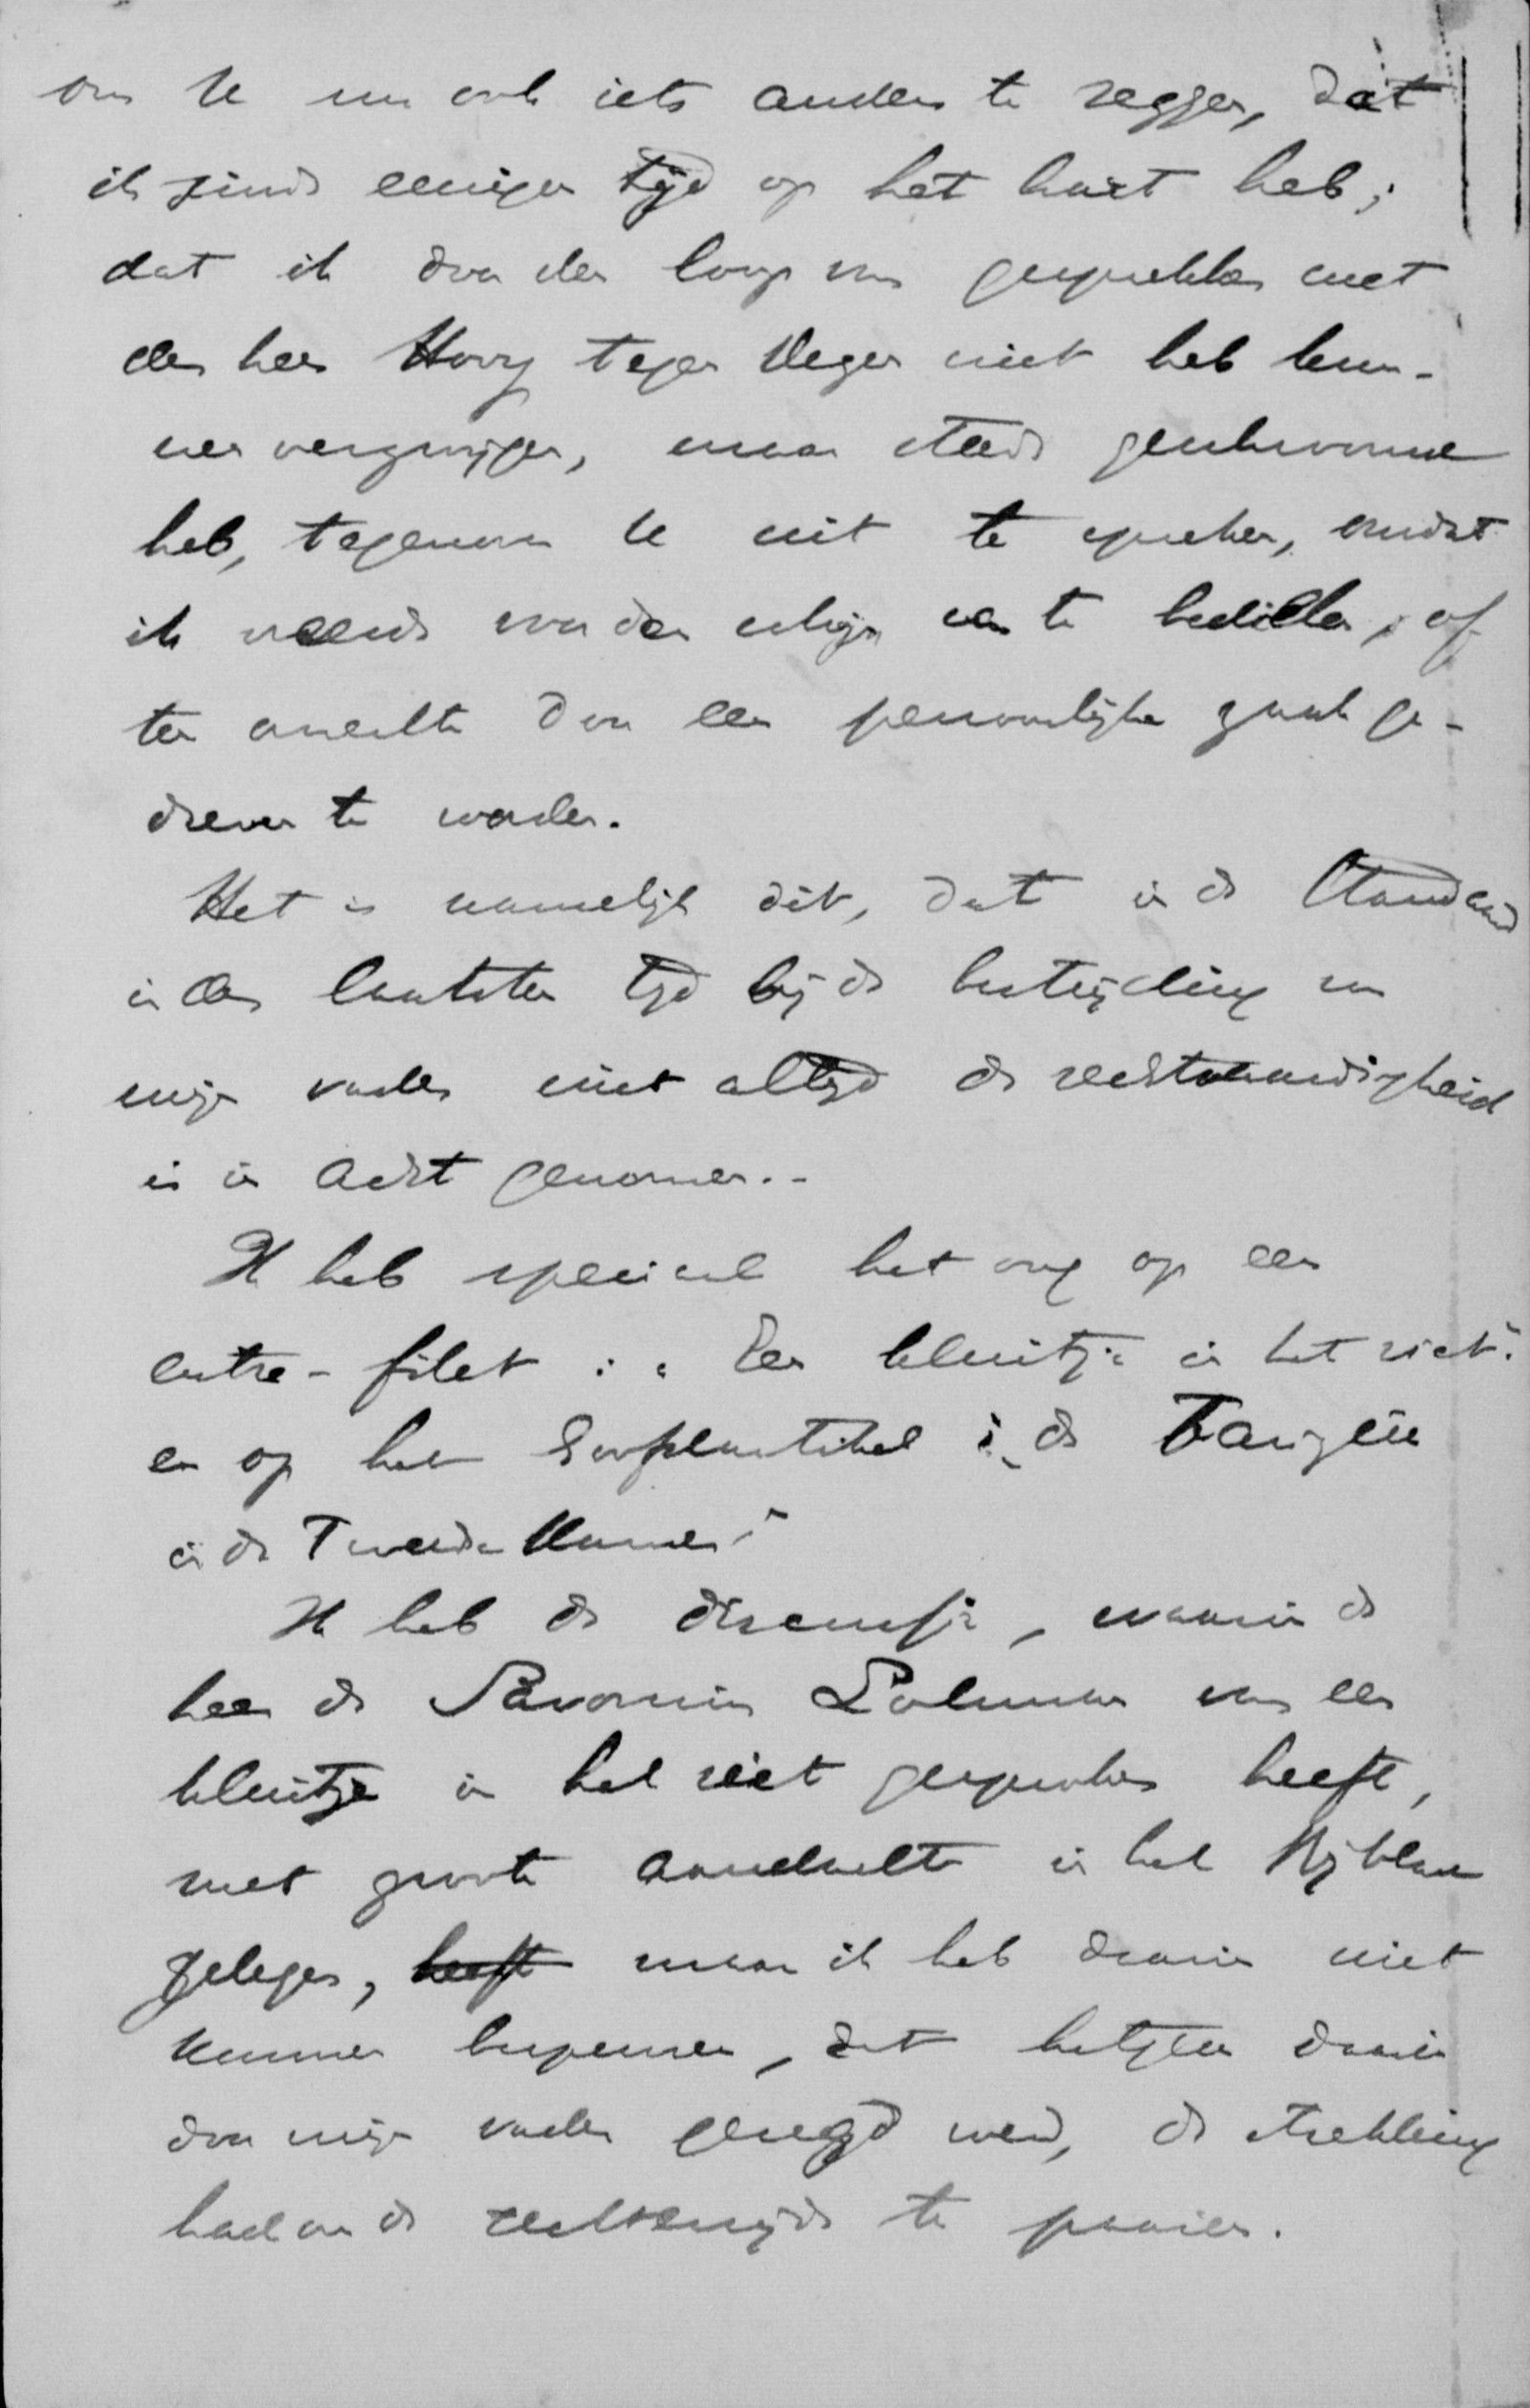 om U nu ook iets anders te zeggen, dat
ik sinds eenigen tijd op het hart heb;
dat ik door den loop van gesprekken met
den heer Hovy tegen dezen niet heb kun-
nen verzwijgen, maar steeds geschroomd
heb, tegenover U uit te spreken, omdat
ik vreesde voor den schijn van te bedillen, of
ter anderlte door een persoonlijke zaak ge-
dreven te worden.
Het is namelijk dit, dat in de Standaard
in den laatsten tijd bij de bestrijding van
mijn vader niet altijd de rechtvaardigheid
is in acht genomen.
Ik heb speciaal het oog op een
entre-filet: "Een kluitje in het riet"
en op het hoofdartikel in de
in de Tweede Kamer"
Ik heb de discussie, waarin de
heer de Savornin Lohman van een
kluitje in het riet gesproken heeft,
met groote aandacht in het Bijblad
gelezen, heeft maar ik heb daarin niet
kunnen bespeuren, dat hetgeen daarin
door mijn vader gezegd werd, de strekking
had om de rechterzijde te paaien.